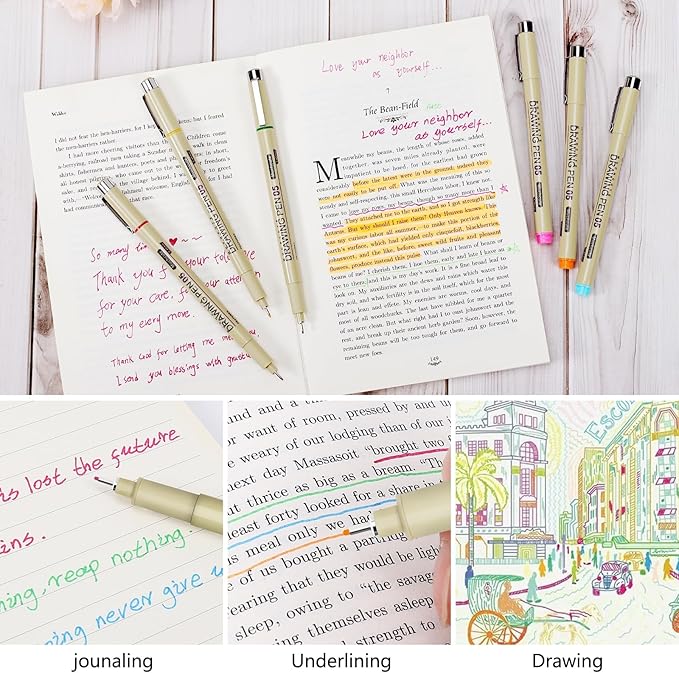 I did not fear the hen-harriers, for I kept no
the hen-harriers rather.
I had more cheering visitors than the
a-berrying, railroad men taking a Sunday
shirts, fishermen and hunters, poets and
all honest pilgrims, who came out to the
sake, and really left the village behind
with,—"Welcome, Englishmen!
had communication with that race.
but I feared
Children come
walk in clean
in short,
freedom's
So many times
Thank you for your tolerance
for your care, for your attention
to my every move.
Thank God for letting me
I send you blessings with
Love your neighbor
as yourself...
7
The Bean-Field
Love your neighbor
as yourself...
Meanwhile my beans, the length of whose rows, added
together, was seven miles already planted, were
impatient to be hoed, for the earliest had grown
considerably before the latest were in the ground; indeed they
were not easily to be put off. What was the meaning of this so
steady and self-respecting, this small Herculean labor, I knew not.
I came to love my rows, my beans, though so many more than I
wanted. They attached me to the earth, and so I got strength like
Antæus. But why should I raise them? Only Heaven knows. This
was my curious labor all summer—to make this portion of the
earth's surface, which had yielded only cinquefoil, blackberries,
johnswort, and the like, before, sweet wild fruits and pleasant
flowers, produce instead this pulse. What shall I learn of beans or
beans of me? I cherish them, I hoe them, early and late I have an
eye to them; and this is my day's work. It is a fine broad leaf to
look on. My auxiliaries are the dews and rains which water this
dry soil, and what fertility is in the soil itself, which for the most
part is lean and effete. My enemies are worms, cool days, and
most of all woodchucks. The last have nibbled for me a quarter
of an acre clean. But what right had I to oust johnswort and the
rest, and break up their ancient herb garden? Soon, however, the
remaining beans will be too tough for them, and go forward to
meet new foes.
149
DRAWING PEN 05
DRAWING PEN 05
DRAWING PEN 05
DRAWING PEN 05
DRAWING PEN 05
DRAWING PEN 05
lost the future
ns.
ning, reap nothing.
ning never give u
and and a
want of room, pressed by and
eary of our lodging than of our
next day Massasoit "brought two
ut thrice as big as a bream. "Th
east forty looked for a share in
is meal only we ha
e of us bought a partridg
ing they would be ligh
g, owing to "the savag
ing themselves asleep
strength to
jounaling
Underlining
Drawing